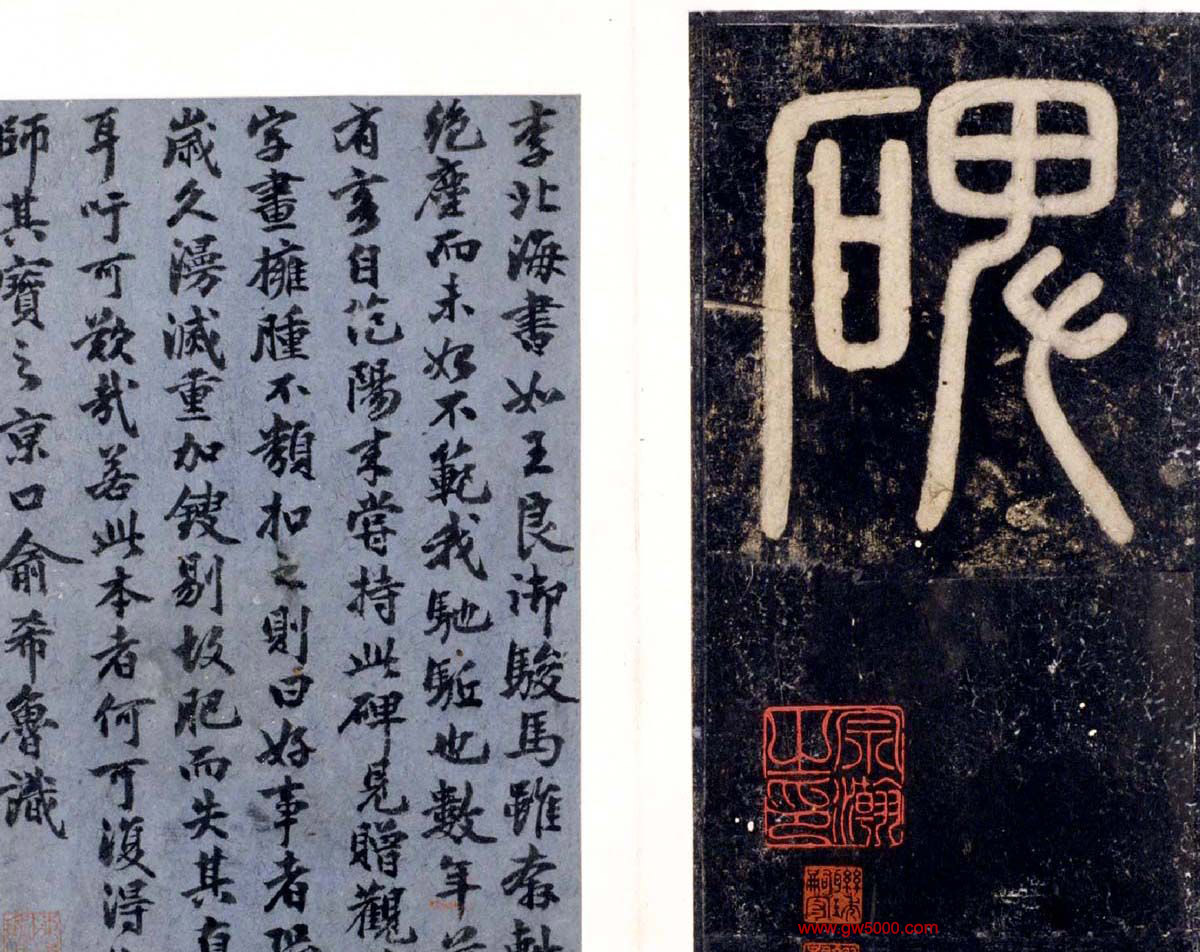 碑
宗瀚之印
李北海書如王良御駿馬雖奔
絕塵而未始不範我馳驅也數年
有客自范陽來嘗持此碑見贈觀
字畫擁腫不類扣之則曰好事者恐
歲久漫滅重加鋟剔故肥而失其真
耳吁可歎哉若此本者何可復得
師其寶之京口俞希魯識
www.gw5000.com